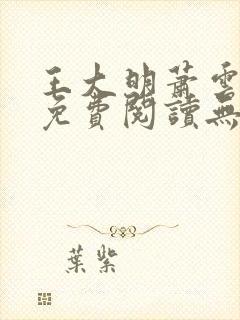 王大明蕭雲
免費閱讀無
葉紫